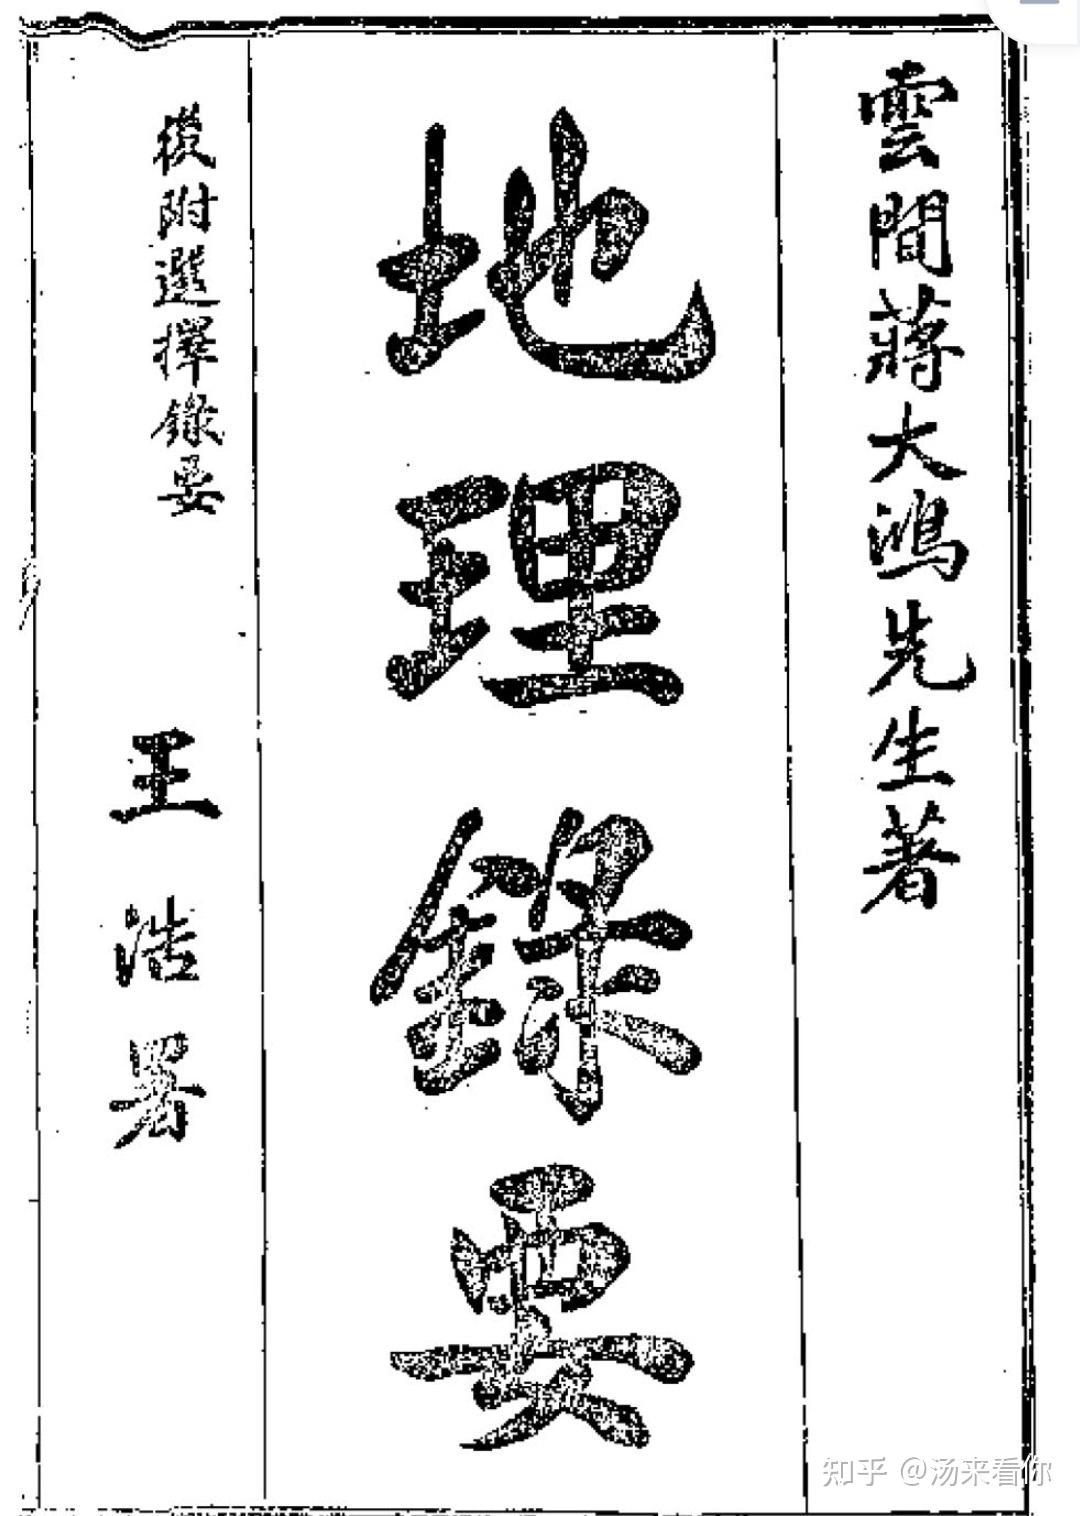 雲間蔣大鴻先生著
地理錄要
後附選擇錄要
王浩署
知乎 @汤来看你